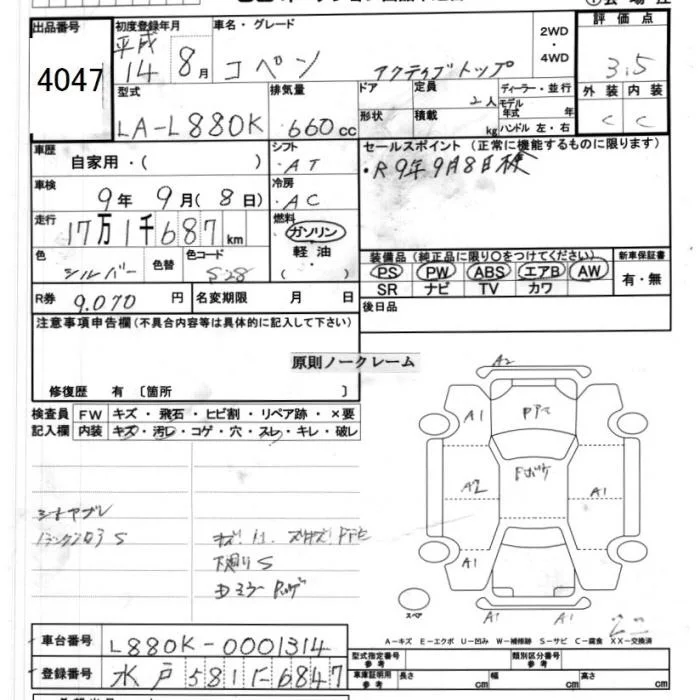 出品番号
4047
初度登録年月
平成
14年 8月
車名・グレード
コペン アクティブトップ
2WD
・
4WD
評価点
3.5
外装 内装
C C
型式
LA-L880K
排気量
660cc
ドア
形状
定員
2人
積載
kg
ディーラー・並行
モデル
年式 年
ハンドル 左・右
車歴
自家用・( )
シフト
AT
セールスポイント (正常に機能するものに限ります)
・R9年9月8日検
車検
9年 9月( 8日)
冷房
AC
走行
17万1千687km
燃料
ガソリン
軽油
( )
色
シルバー
色替
色コード
S28
装備品(純正品に限り○をつけてください)
PS PW ABS エアB AW
SR ナビ TV カワ
新車保証書
有・無
R券
9,070 円
名変期限 月 日
後日品
注意事項申告欄(不具合内容等は具体的に記入して下さい)
原則ノークレーム
修復歴 有〔箇所 〕
検査員
記入欄
FW キズ・飛石・ヒビ割・リペア跡・×要
内装 キズ・汚レ・コゲ・穴・スレ・キレ・破レ
シートヤブレ
S
下廻りS
A2
A1
A2
A1
A1
A1
A1
スペア
A-キズ E-エクボ U-凹み W-補修跡 S-サビ C-腐食 XX-交換済
車台番号
L880K-0001314
登録番号
水戸581に6847
型式指定番号
参考
類別区分番号
参考
車庫証明用
参考
長さ cm 幅 cm 高さ cm